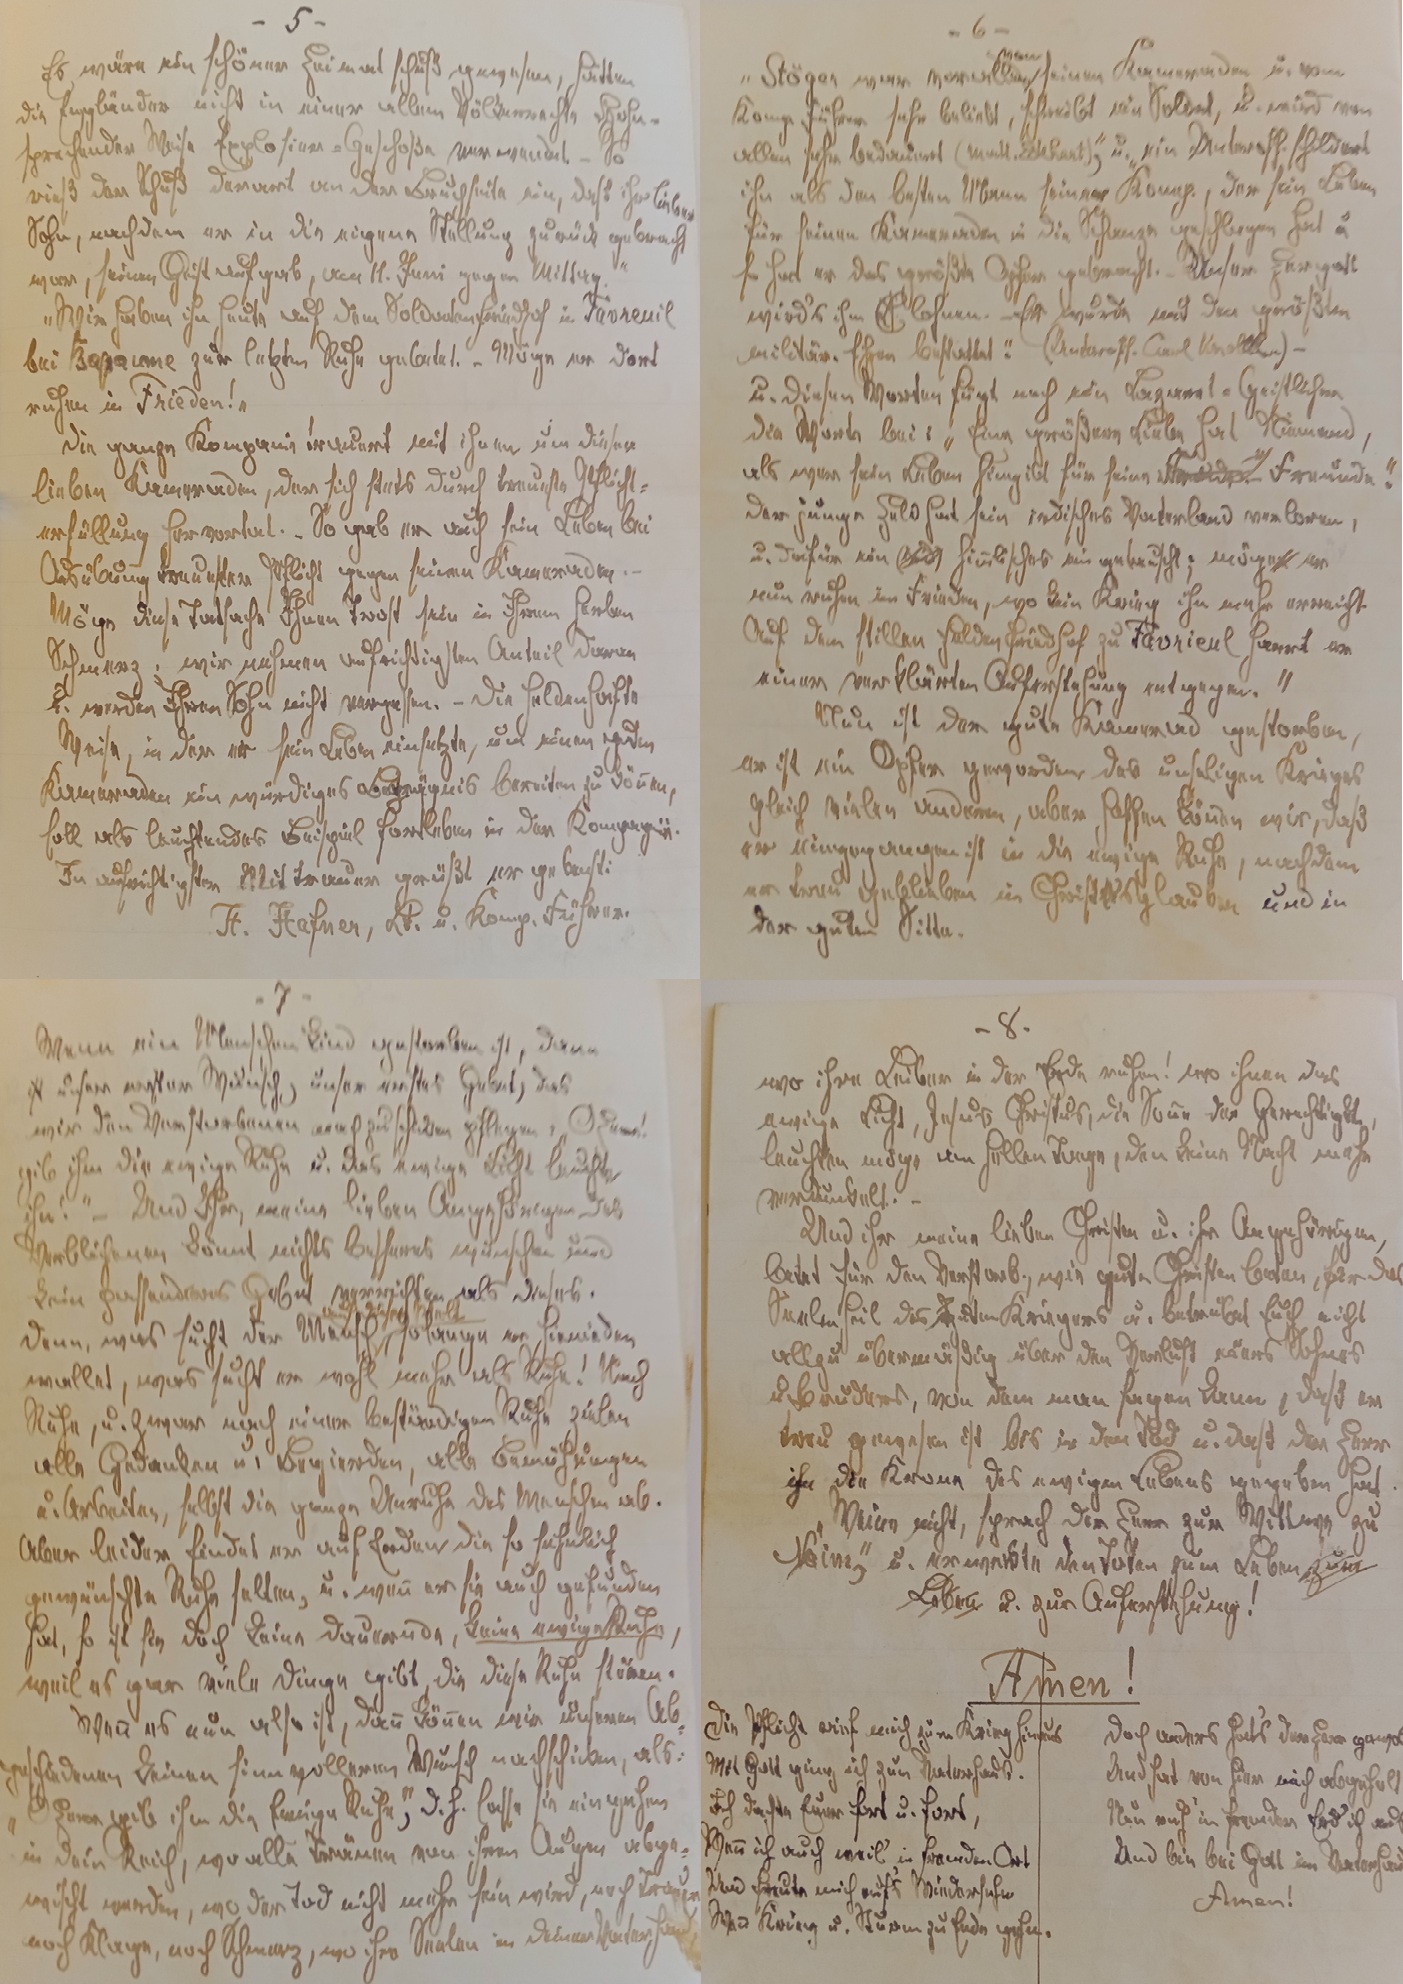 - 5 -
Es wäre ein schöner Heimatschuß gewesen, hätten
die Engländer nicht in einer allem Völkerrechte Hohn-
sprechender Weise Explosiver-Geschoße verwendet. - So
rieß der Schuß derart an der Bruchseite ein, daß ihr lieber
Sohn, nachdem er in die eigene Stellung zurück gebracht
war, seinen Geist aufgab, am 11. Juni gegen Mittag."
"Wir haben ihn heute auf dem Soldatenfriedhof in Favreuil
bei Bapaume zur letzten Ruhe gebetet. - Möge er dort
ruhen in Frieden!"
Die ganze Kompanie trauert mit ihnen um diesen
lieben Kameraden, der sich stets durch treueste Pflicht-
erfüllung hervortat. - So gab er auch sein Leben bei
Ausübung treuester Pflicht gegen seinen Kameraden. -
Möge diese Tatsache Ihnen Trost sein in Ihrem herben
Schmerz; wir nehmen aufrichtigsten Anteil daran
u. werden Ihren Sohn nicht vergessen. - Die heldenhafte
Weise, in der er sein Leben einsetzte, um einen guten
Kameraden ein würdiges Begräbnis bereiten zu können,
soll als leuchtendes Beispiel fortleben in der Kompagnie.
In aufrichtigster Mittrauer grüßt ergebenst:
H. Hafner, Lt. u. Komp. Führer.
- 6 -
"Stöger war von allen seinen Kameraden u. vom
Komp. Führer sehr beliebt, schreibt ein Soldat, u. wird von
allen sehr bedauert" u. ein Unteroff. schildert
ihn als den besten Mann seiner Komp., der sein Leben
für seinen Kameraden in die Schanze geschlagen hat u
so hat er das größte Opfer gebracht. - Unser Herrgott
wird's ihm lohnen. - Er wurde mit den größten
militär. Ehren bestattet." (Unteroff. Carl) -
u. diesen Worten fügt noch ein Lazaret-Geistlicher
die Worte bei: "Eine größere Liebe hat Niemand,
als wer sein Leben hingibt für seine Freunde."
Der junge Held hat sein irdisches Vaterland verloren,
u. dafür ein himlisches eingetauscht; möge er
nun ruhen im Frieden, wo kein Krieg ihn mehr erreicht.
Auf dem stillen Heldenfriedhof zu Favrieul harrt er
einer verklärten Auferstehung entgegen."
Nun ist der gute Kamerad gestorben,
er ist ein Opfer geworden des unseligen Krieges
gleich vielen anderen, aber hoffen können wir, daß
er eingegangen ist in die ewige Ruhe, nachdem
er treu geblieben im Christusglauben und in
der guten Sitte.
- 7 -
Wenn ein Menschenkind gestorben ist, dann
ist unser erster Wunsch, unser erstes Gebet, das
wir den Verstorbenen nachzuschicken pflegen: "O Herr!
gib ihm die ewige Ruhe u. das ewige Licht leuchte
ihn!" - Und Ihr, meine lieben Angehörigen des
Verblichenen könnt nichts besseres wünschen und
kein passenderes Gebet verrichten als dieses.
auf dieser Welt
Denn, was sucht der Mensch, solange er hienieden
wallet, was sucht er wohl mehr als Ruhe! Nach
Ruhe, u. zwar nach einer beständigen Ruhe zielen
alle Gedanken u. Begierden, alle Bemühungen
u. Arbeiten, selbst die ganze Unruhe des Menschen ab.
Aber leider findet er auf Erden die so sehnlich
gewünschte Ruhe selten, u. wenn er sie auch gefunden
hat, so ist sie doch keine dauernde, keine ewige Ruhe,
weil es gar viele Dinge gibt, die diese Ruhe stören.
Wenn es nun also ist, dann können wir unseren Ab-
geschiedenen keinen sinnvolleren Wunsch nachschicken, als:
"O Herr gib ihm die Ewige Ruhe", d.h. lasse sie eingehen
in dein Reich, wo alle Tränen von ihren Augen abge-
wischt werden, wo der Tod nicht mehr sein wird, noch Trauer
noch Klage, noch Schmerz, wo ihre Seelen in deinem Vaterhaus,
- 8 -
wo ihre Leiber in der Erde ruhen! wo ihnen das
ewige Licht, Jesus Christus, die Sonne der Gerechtigkt,
leuchten möge am hellen Tage, den keine Nacht mehr
verdunkelt. -
Und ihr meine lieben Christen u. ihr Angehörigen,
betet für den Verstorb., wie gute Christen beten, für das
Seelenheil des Kriegers u. betrübet Euch nicht
allzu übermäßig über den Verlust eures Sohnes
u. Bruders, von dem man sagen kann, daß er
treu gewesen ist bis in den Tod u. daß der Herr
ihn die Krone des ewigen Lebens gegeben hat.
"Weine nicht, sprach der Herr zur Wittwe zu
Naine" u. erweckte den Toten zum Leben zum
Leben u. zur Auferstehung!
Amen!
Die Pflicht rief mich zum Krieg hinaus
Mit Gott ging ich zum Vaterhaus.
Ich dachte Euer fort u. fort,
Wenn ich auch weil' in fremden Ort
Und freute mich auf's Wiedersehn
Wenn Krieg u. Sturm zu Ende gehn.
Doch anders hat's der Herr gewol
Und hat von hier mich abgeholt
Nun ruh' in fremder Erd' ich aus
Und bin bei Gott im Vaterhau
Amen!